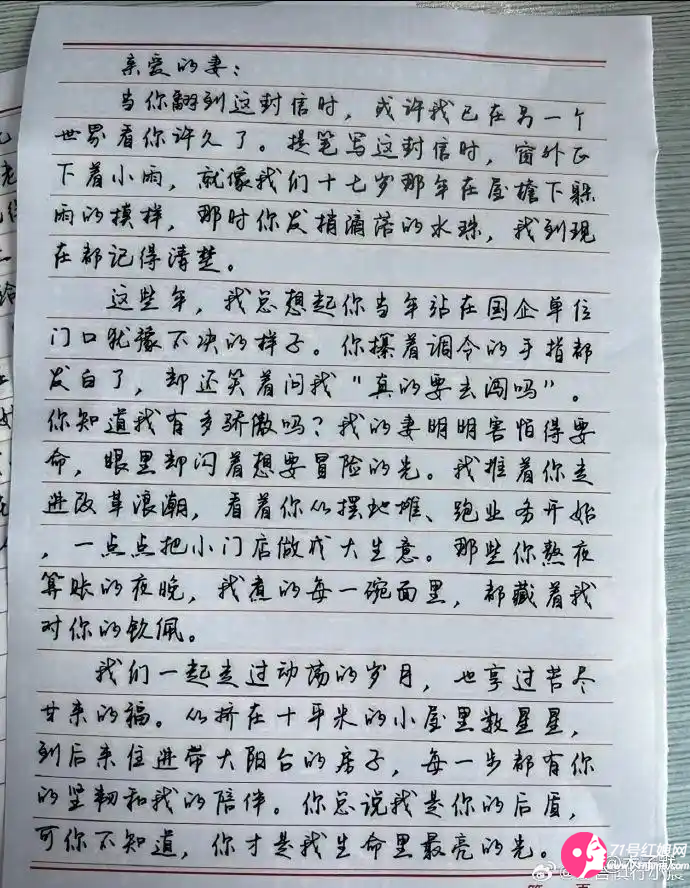 亲爱的妻：
当你翻到这封信时，或许我已在另一个
世界看你许久了。提笔写这封信时，窗外正
下着小雨，就像我们十七岁那年在屋檐下躲
雨的模样，那时你发梢滴落的水珠，我到现
在都记得清楚。
这些年，我总想起你当年站在国企单位
门口犹豫不决的样子。你攥着调令的手指都
发白了，却还笑着问我“真的要去闯吗”。
你知道我有多骄傲吗？我的妻明明害怕得要
命，眼里却闪着想要冒险的光。我推着你走
进改革浪潮，看着你从摆地摊、跑业务开始
，一点点把小门店做成大生意。那些你熬夜
算账的夜晚，我煮的每一碗面里，都藏着我
对你的钦佩。
我们一起走过动荡的岁月，也享过苦尽
甘来的福。从挤在十平米的小屋里数星星，
到后来住进带大阳台的房子，每一步都有你
的坚韧和我的陪伴。你总说我是你的后盾，
可你不知道，你才是我生命里最亮的光。
71号红娘网